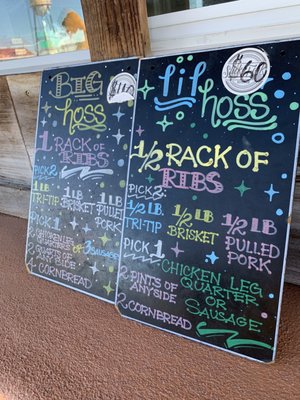 BIG
HOSS
1 RACK OF
RIBS
PICK 2
1 LB
TRI-TIP
1 LB
BRISKET
1 LB
PULLED
PORK
PICK 1
CHICKEN
3 SAUSAGE
2 QUARTS OF
ANY SIDE
4 CORNBREAD
lil'
HOSS
$60
1/2 RACK OF
RIBS
PICK 2
1/2 LB
TRI-TIP
1/2 LB
BRISKET
1/2 LB
PULLED
PORK
PICK 1
CHICKEN LEG
QUARTER
OR
SAUSAGE
2 PINTS OF
ANYSIDE
2 CORNBREAD